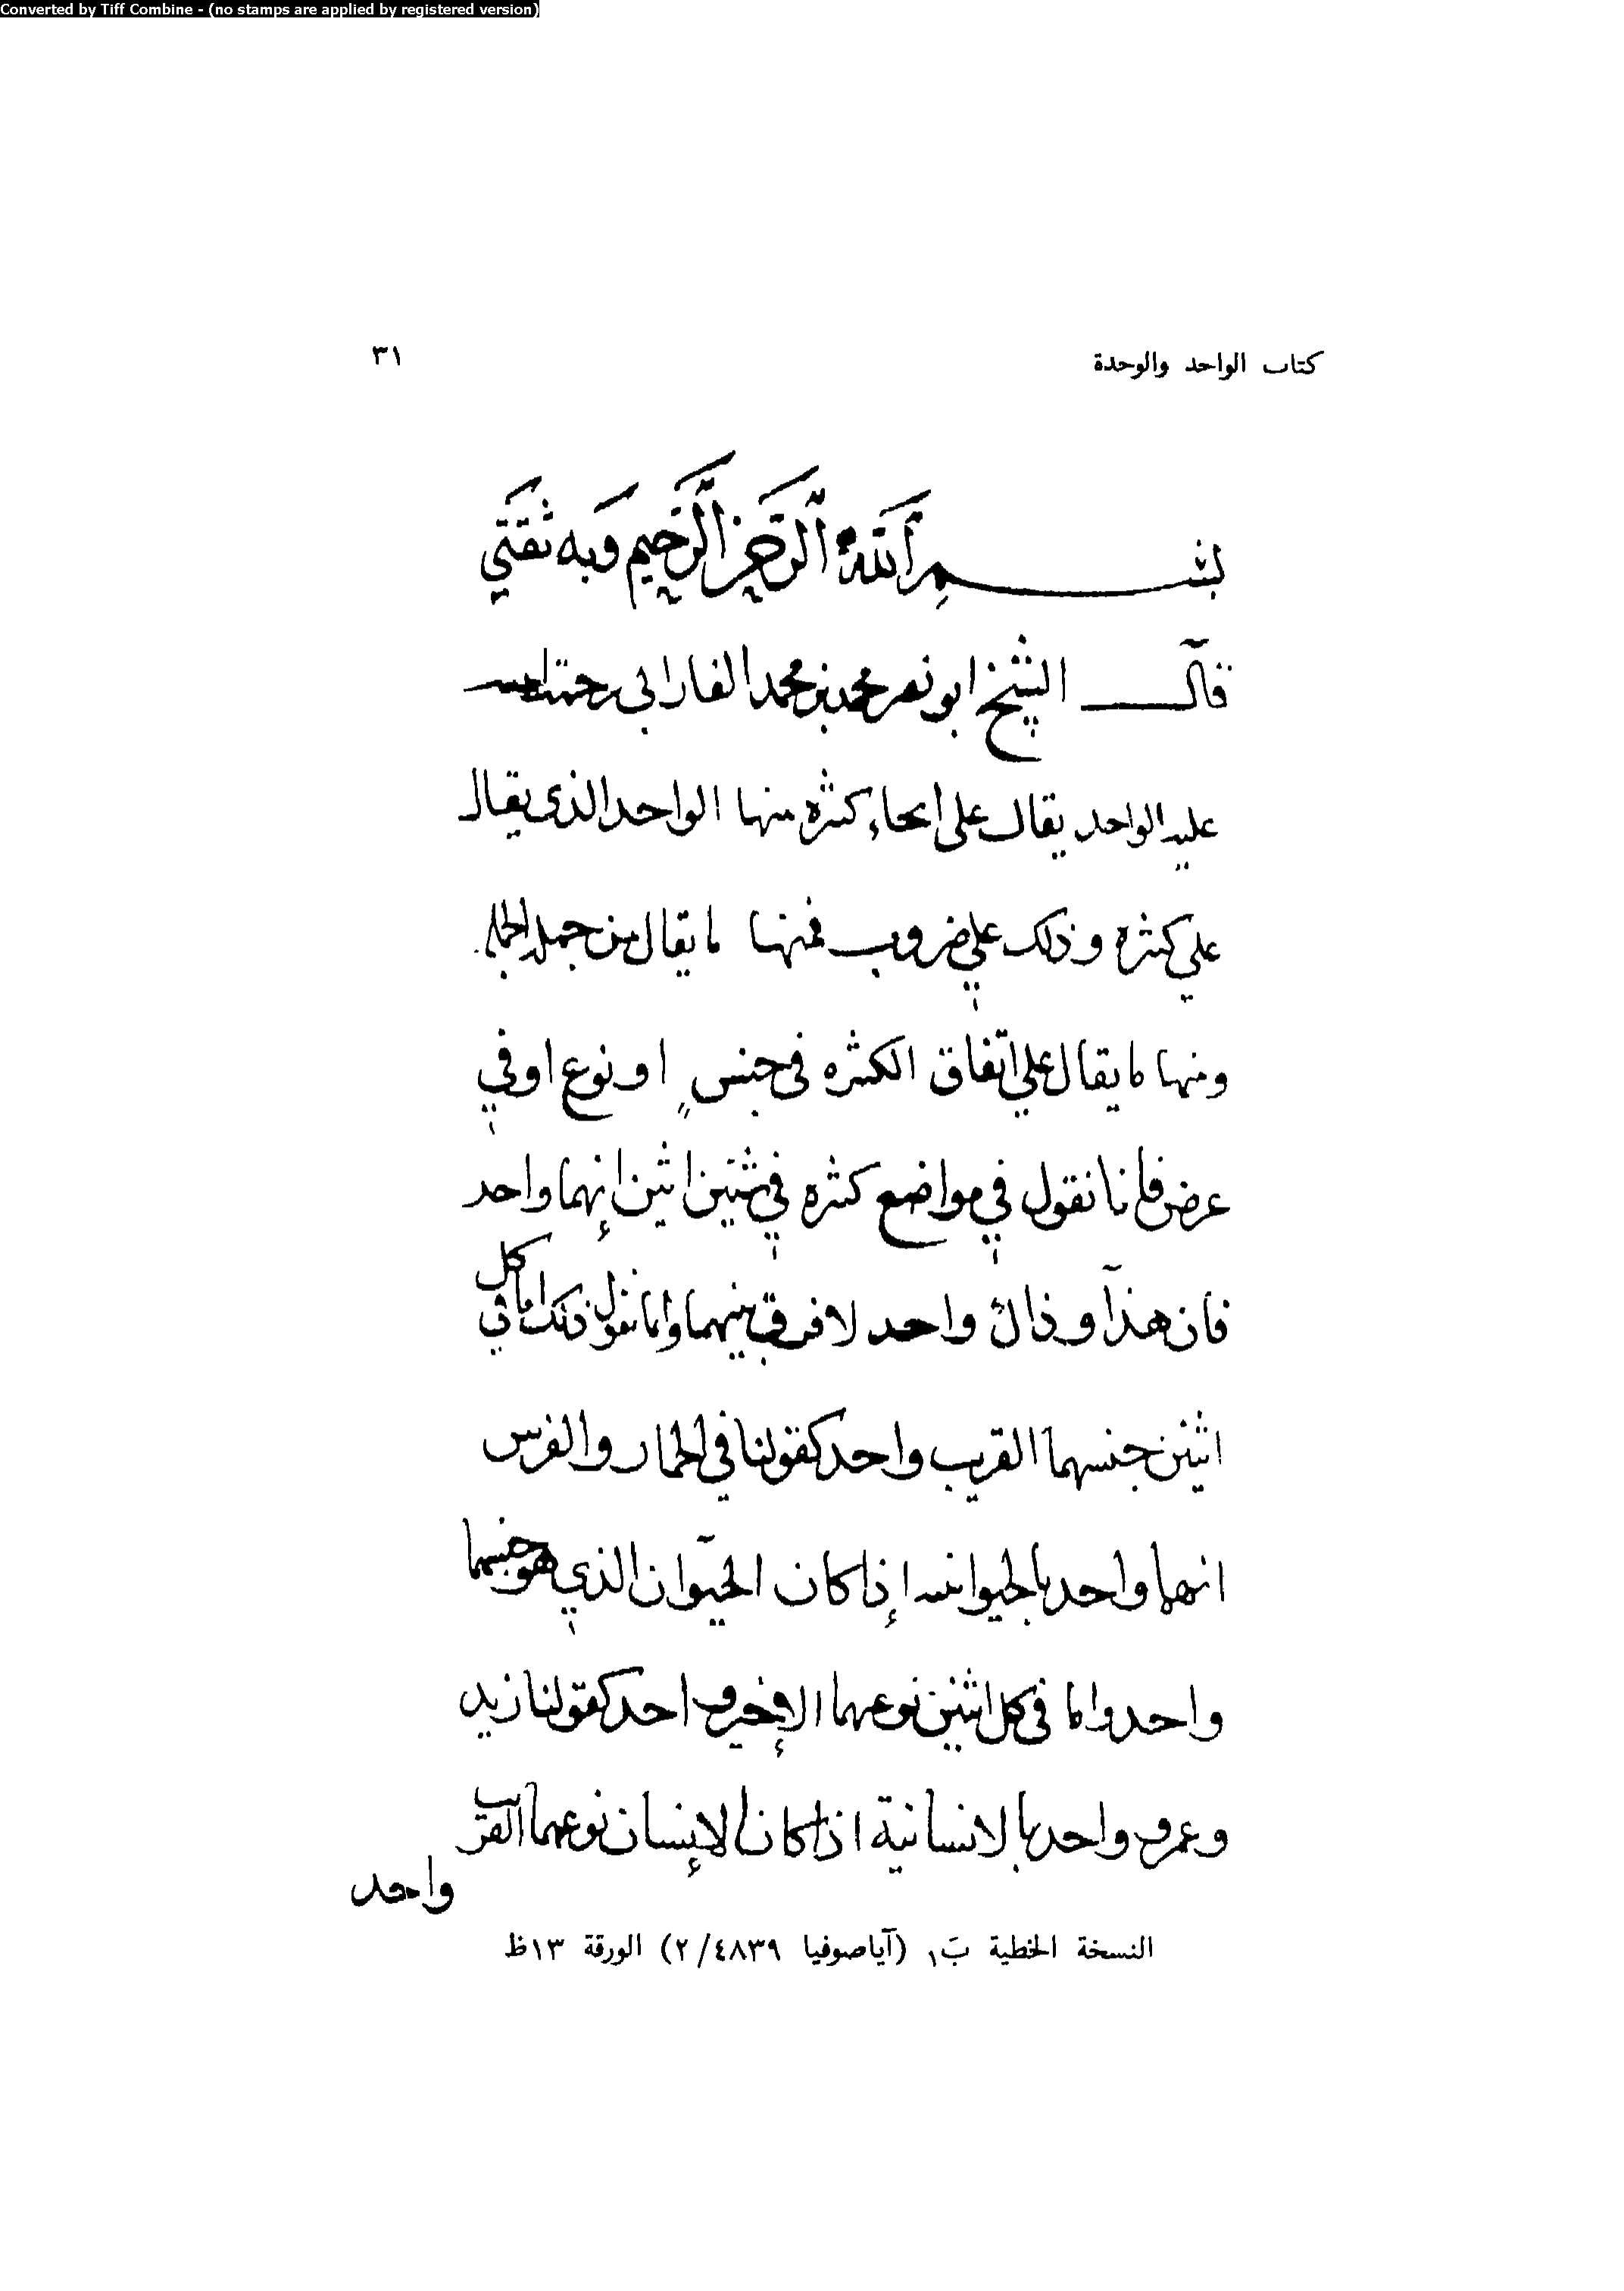 Converted by Tiff Combine - (no stamps are applied by registered version)
كتاب الواحد والوحدة
٣١
بسم الله الرحمن الرحيم وبه ثقتي
قال الشيخ ابو نصر محمد بن محمد الفارابى رحمة الله
عليه الواحد يقال على انحاء كثيره منها الواحد الذى يقال
على كثيره وذلك على ضروب فمنها ما يقال من
ومنها ما يقال على اتفاق الكثيره فى جنس او نوع او في
عرض فانا نقول في مواضع كثيره في شيئين اثنين إنهما واحد
فان هذا وذاك واحد لا فرق بينهما وانما نقول ذلك اما في كل
اثنين جنسهما القريب واحد كقولنا في الحمار والفرس
انهما واحد بالحيوانيه إذا كان الحيوان الذي هو جنسهما
واحد واما فى كل اثنين نوعهما الإخير واحد كقولنا زيد
وعمرو واحد بالانسانية اذا كان الإنسان نوعهما القريب
واحد
النسخة الخطية بَ١ (آياصوفيا ٤٨٣٩/٢) الورقة ١٣ظ